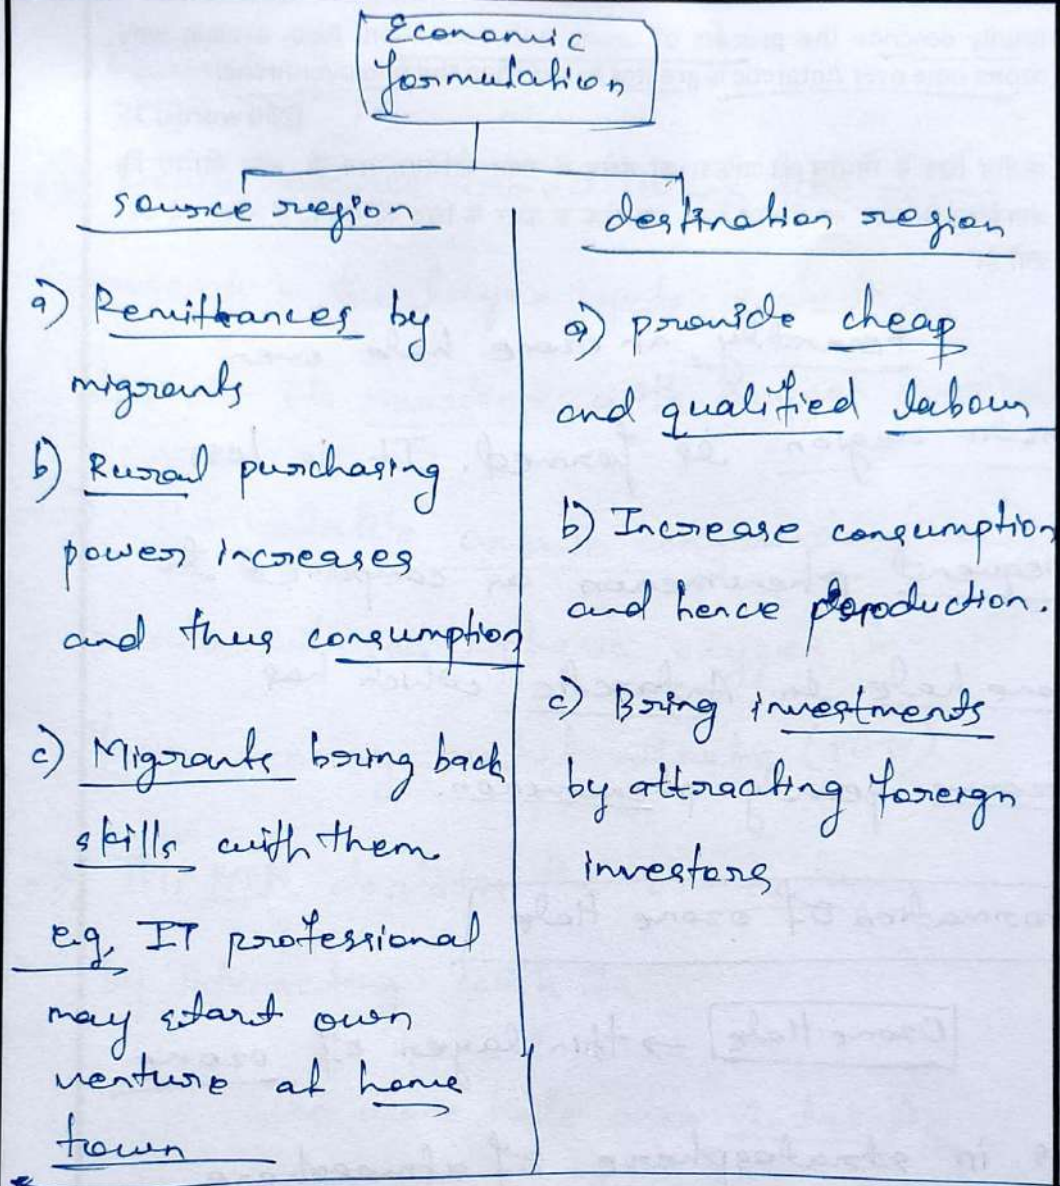 Economic
formulation
source region
a) Remittances by
migrants
b) Rural purchasing
power increases
and thus consumption
c) Migrants bring back
skills with them
e.g, IT professional
may start own
venture at home
town
destination region
a) provide cheap
and qualified labour
b) Increase consumption
and hence production.
c) Bring investments
by attracting foreign
investors